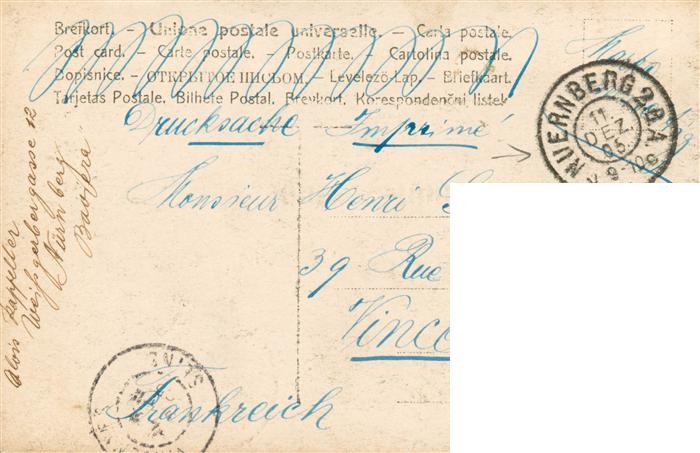 Brefkort. – Unione postale universelle. – Carta postale.
Post card. – Carte postale. – Postkarte. – Cartolina postale.
Dopisnice. – ОТКРЫТОЕ ПИСЬМО. – Levelező-Lap. – Briefkaart.
Tarjetas Postale. Bilhete Postal. Brevkort. Korespondenční listek
Drucksache Imprimé
NUERNBERG 2 B.A.
11 DEZ 05
V. 9-10
Monsieur Henri
39 Rue
Vinco
Frankreich
Alois
Weißgerbergasse 12
Nürnberg
SEINE